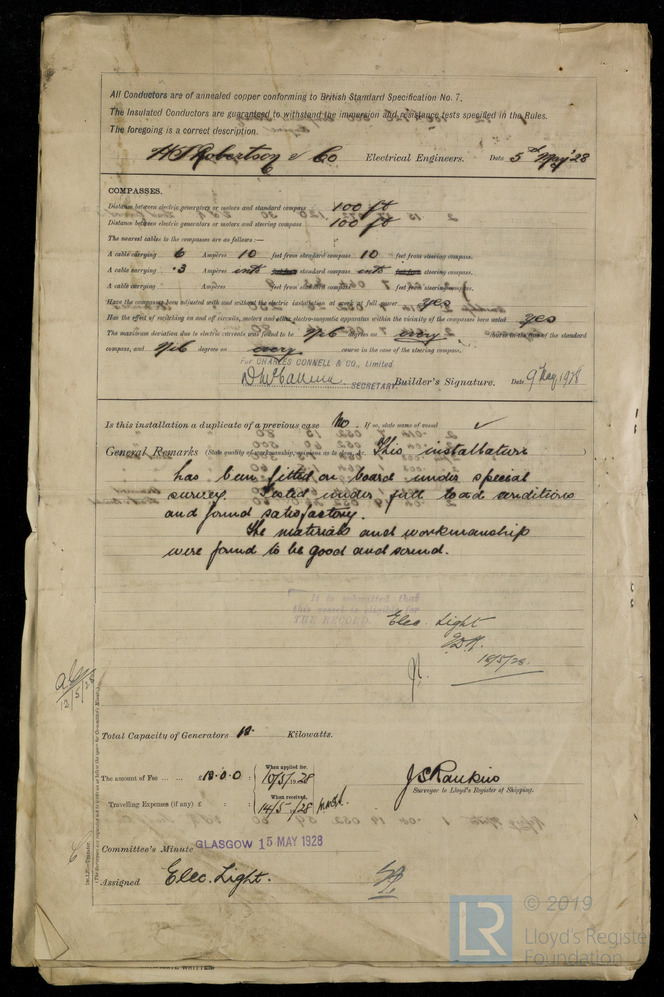 All Conductors are of annealed copper conforming to British Standard Specification No. 7.
The Insulated Conductors are guaranteed to withstand the immersion and resistance tests specified in the Rules.
The foregoing is a correct description.
H S Robertson & Co Electrical Engineers. Date 5th May '28
COMPASSES.
Distance between electric generators or motors and standard compass 100 ft
Distance between electric generators or motors and steering compass 100 ft
The nearest cables to the compasses are as follows:—
A cable carrying 6 Ampères 10 feet from standard compass 10 feet from steering compass.
A cable carrying .3 Ampères into standard compass into steering compass.
A cable carrying Ampères feet from standard compass feet from steering compass.
Have the compasses been adjusted with and without the electric installation at work at full power yes
Has the effect of switching on and off circuits, motors and other electro-magnetic apparatus within the vicinity of the compasses been noted yes
The maximum deviation due to electric currents was found to be Nil degrees on every course in the case of the standard
compass, and Nil degrees on every course in the case of the steering compass.
For CHARLES CONNELL & CO., Limited
SECRETARY. Builder's Signature. Date 9 May 1928
Is this installation a duplicate of a previous case No If so, state name of vessel ✓
General Remarks (State quality of workmanship, opinions as to class, &c. This installation
has been fitted on board under special
survey. Tested under full load conditions
and found satisfactory.
The materials and workmanship
were found to be good and sound.
It is submitted that
this vessel is eligible for
THE RECORD. Elec. Light
15/5/28.
12/5/28
Total Capacity of Generators 12. Kilowatts.
The amount of Fee ... ... £12.0.0 : When applied for, 10/5/1928
J S Rankin
Surveyor to Lloyd's Register of Shipping.
Travelling Expenses (if any) £ : : When received, 14/5/28
Committee's Minute GLASGOW 15 MAY 1928
Assigned Elec. Light.
LR © 2019
Lloyd's Register
Foundation